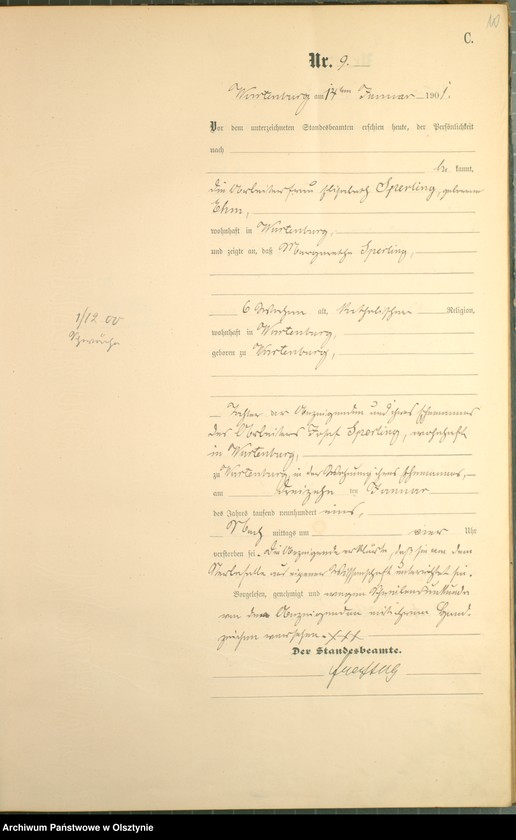 10
C.
Nr. 9.
Wartenburg am 14ten Januar 1901.
Vor dem unterzeichneten Standesbeamten erschien heute, der Persönlichkeit
nach
be kannt,
die Arbeiterfrau Elisabeth Sperling, geborene
Ehm,
wohnhaft in Wartenburg,
und zeigte an, daß Margarethe Sperling,
6 Wochen alt, katholischer Religion,
1/12 00
wohnhaft in Wartenburg,
geboren zu Wartenburg,
Tochter der Anzeigenden und ihres Ehemannes
des Arbeiters Josef Sperling, wohnhaft
in Wartenburg,
zu Wartenburg, in der Wohnung ihres Ehemannes,
am dreizehn ten Januar
des Jahres tausend neunhundert eins,
Nach mittags um vier Uhr
verstorben sei. Die Anzeigende erklärte, daß sie von dem
Sterbefalle aus eigener Wissenschaft unterrichtet sei.
Vorgelesen, genehmigt und wegen Schreibensunkunde
von der Anzeigenden mit ihrem Hand-
zeichen versehen. +++
Der Standesbeamte.
Archiwum Państwowe w Olsztynie